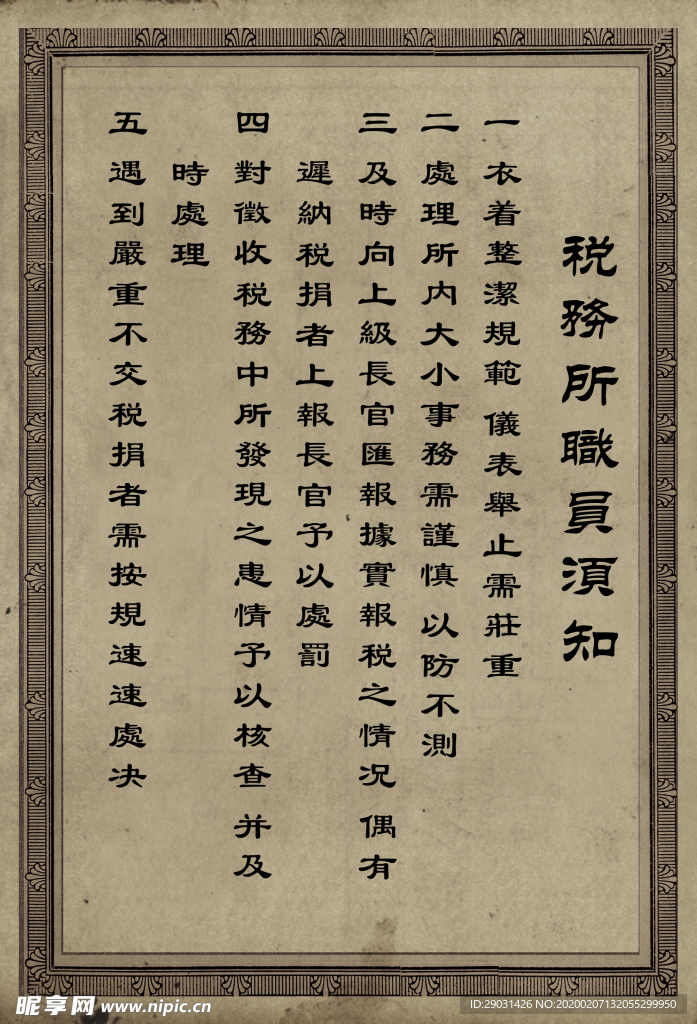 税務所職員須知
一 衣着整潔規範 儀表舉止需莊重
二 處理所内大小事務需謹慎 以防不測
三 及時向上級長官匯報據實報税之情况 偶有
遲納税捐者上報長官予以處罰
四 對徵收税務中所發現之患情予以核查 并及
時處理
五 遇到嚴重不交税捐者需按規速速處决
昵享网 www.nipic.cn
ID:29031426 NO:20200207132055299950